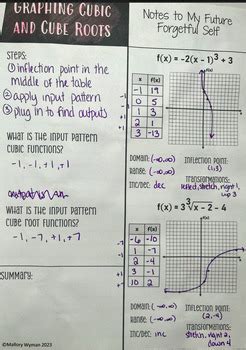 GRAPHING CUBIC
AND CUBE ROOTS
Notes to My Future
Forgetful Self
STEPS:
① inflection point in the
middle of the table
② apply input pattern
③ plug in to find outputs
WHAT IS THE INPUT PATTERN
CUBIC FUNCTIONS?
-1, -1, +1, +1
WHAT IS THE INPUT PATTERN
CUBE ROOT FUNCTIONS?
-1, -7, +1, +7
SUMMARY:
f(x) = -2(x - 1)³ + 3
x f(x)
-1 19
0 5
1 3
2 1
3 -13
f(x)
DOMAIN: (-∞,∞)
RANGE: (-∞,∞)
INC/DEC: dec
INFLECTION POINT:
(1,3)
TRANSFORMATIONS:
reflect, stretch, right 1,
up 3
f(x) = 3∛x - 2 - 4
x f(x)
-6 -10
1 -7
2 -4
3 -1
10 2
f(x)
DOMAIN: (-∞,∞)
RANGE: (-∞,∞)
INC/DEC: inc
INFLECTION POINT:
(2,-4)
TRANSFORMATIONS:
stretch, right 2,
down 4
©Mallory Wyman 2023